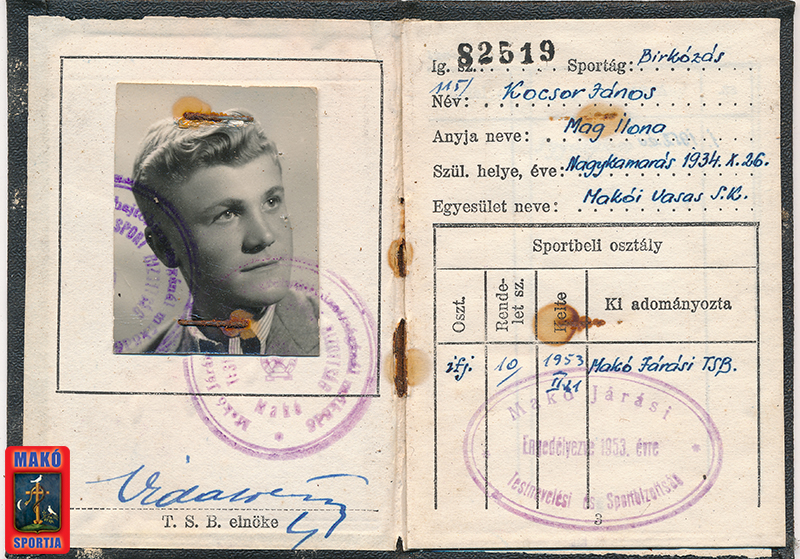 T. S. B. elnöke
MAKÓ
SPORTJA
Ig. sz. 82519 Sportág: Birkózás
115/
Név: Kocsor János
Anyja neve: Mag Ilona
Szül. helye, éve: Nagykamarás 1934. X. 26.
Egyesület neve: Makói Vasas S.K.
Sportbeli osztály
Oszt. Rendelet sz. Kelte Ki adományozta
ifj. 10/ 1953 Makó Járási TSB.
Makó Járási
Engedélyezve 1953. évre
Testnevelési és Sportbizottság
3